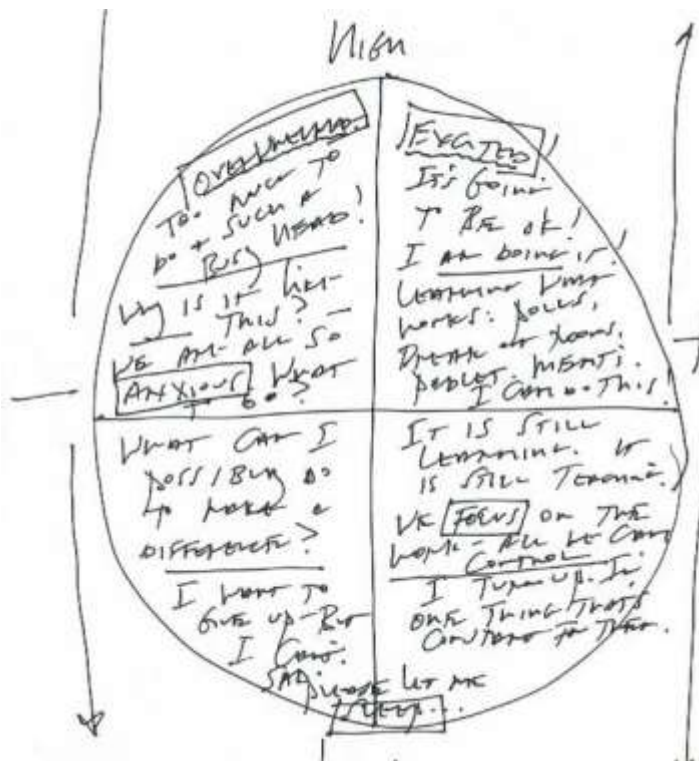 HIGH
OVERWHELMED.
TOO MUCH TO
DO + SUCH A
BUSY HEAD!
WHY IS IT LIKE
THIS? -
WE ARE ALL SO
ANXIOUS WHAT
TO DO?
EXCITED!
IT'S GOING
TO BE OK!
I AM DOING IT!
LEARNING WHAT
WORKS: POLLS,
BREAK OUT ROOMS,
PADLET. MENTI.
I CAN DO THIS.
WHAT CAN I
POSSIBLY DO
TO MAKE A
DIFFERENCE?
I WANT TO
GIVE UP - BUT
I CAN'T.
SAD.
PLEASE LET ME
SLEEP...
IT IS STILL
LEARNING. IT
IS STILL TEACHING.
WE FOCUS ON THE
WORK - ALL WE CAN
CONTROL
I TURN UP. I'M
ONE THING THAT'S
CONSTANT FOR THEM.